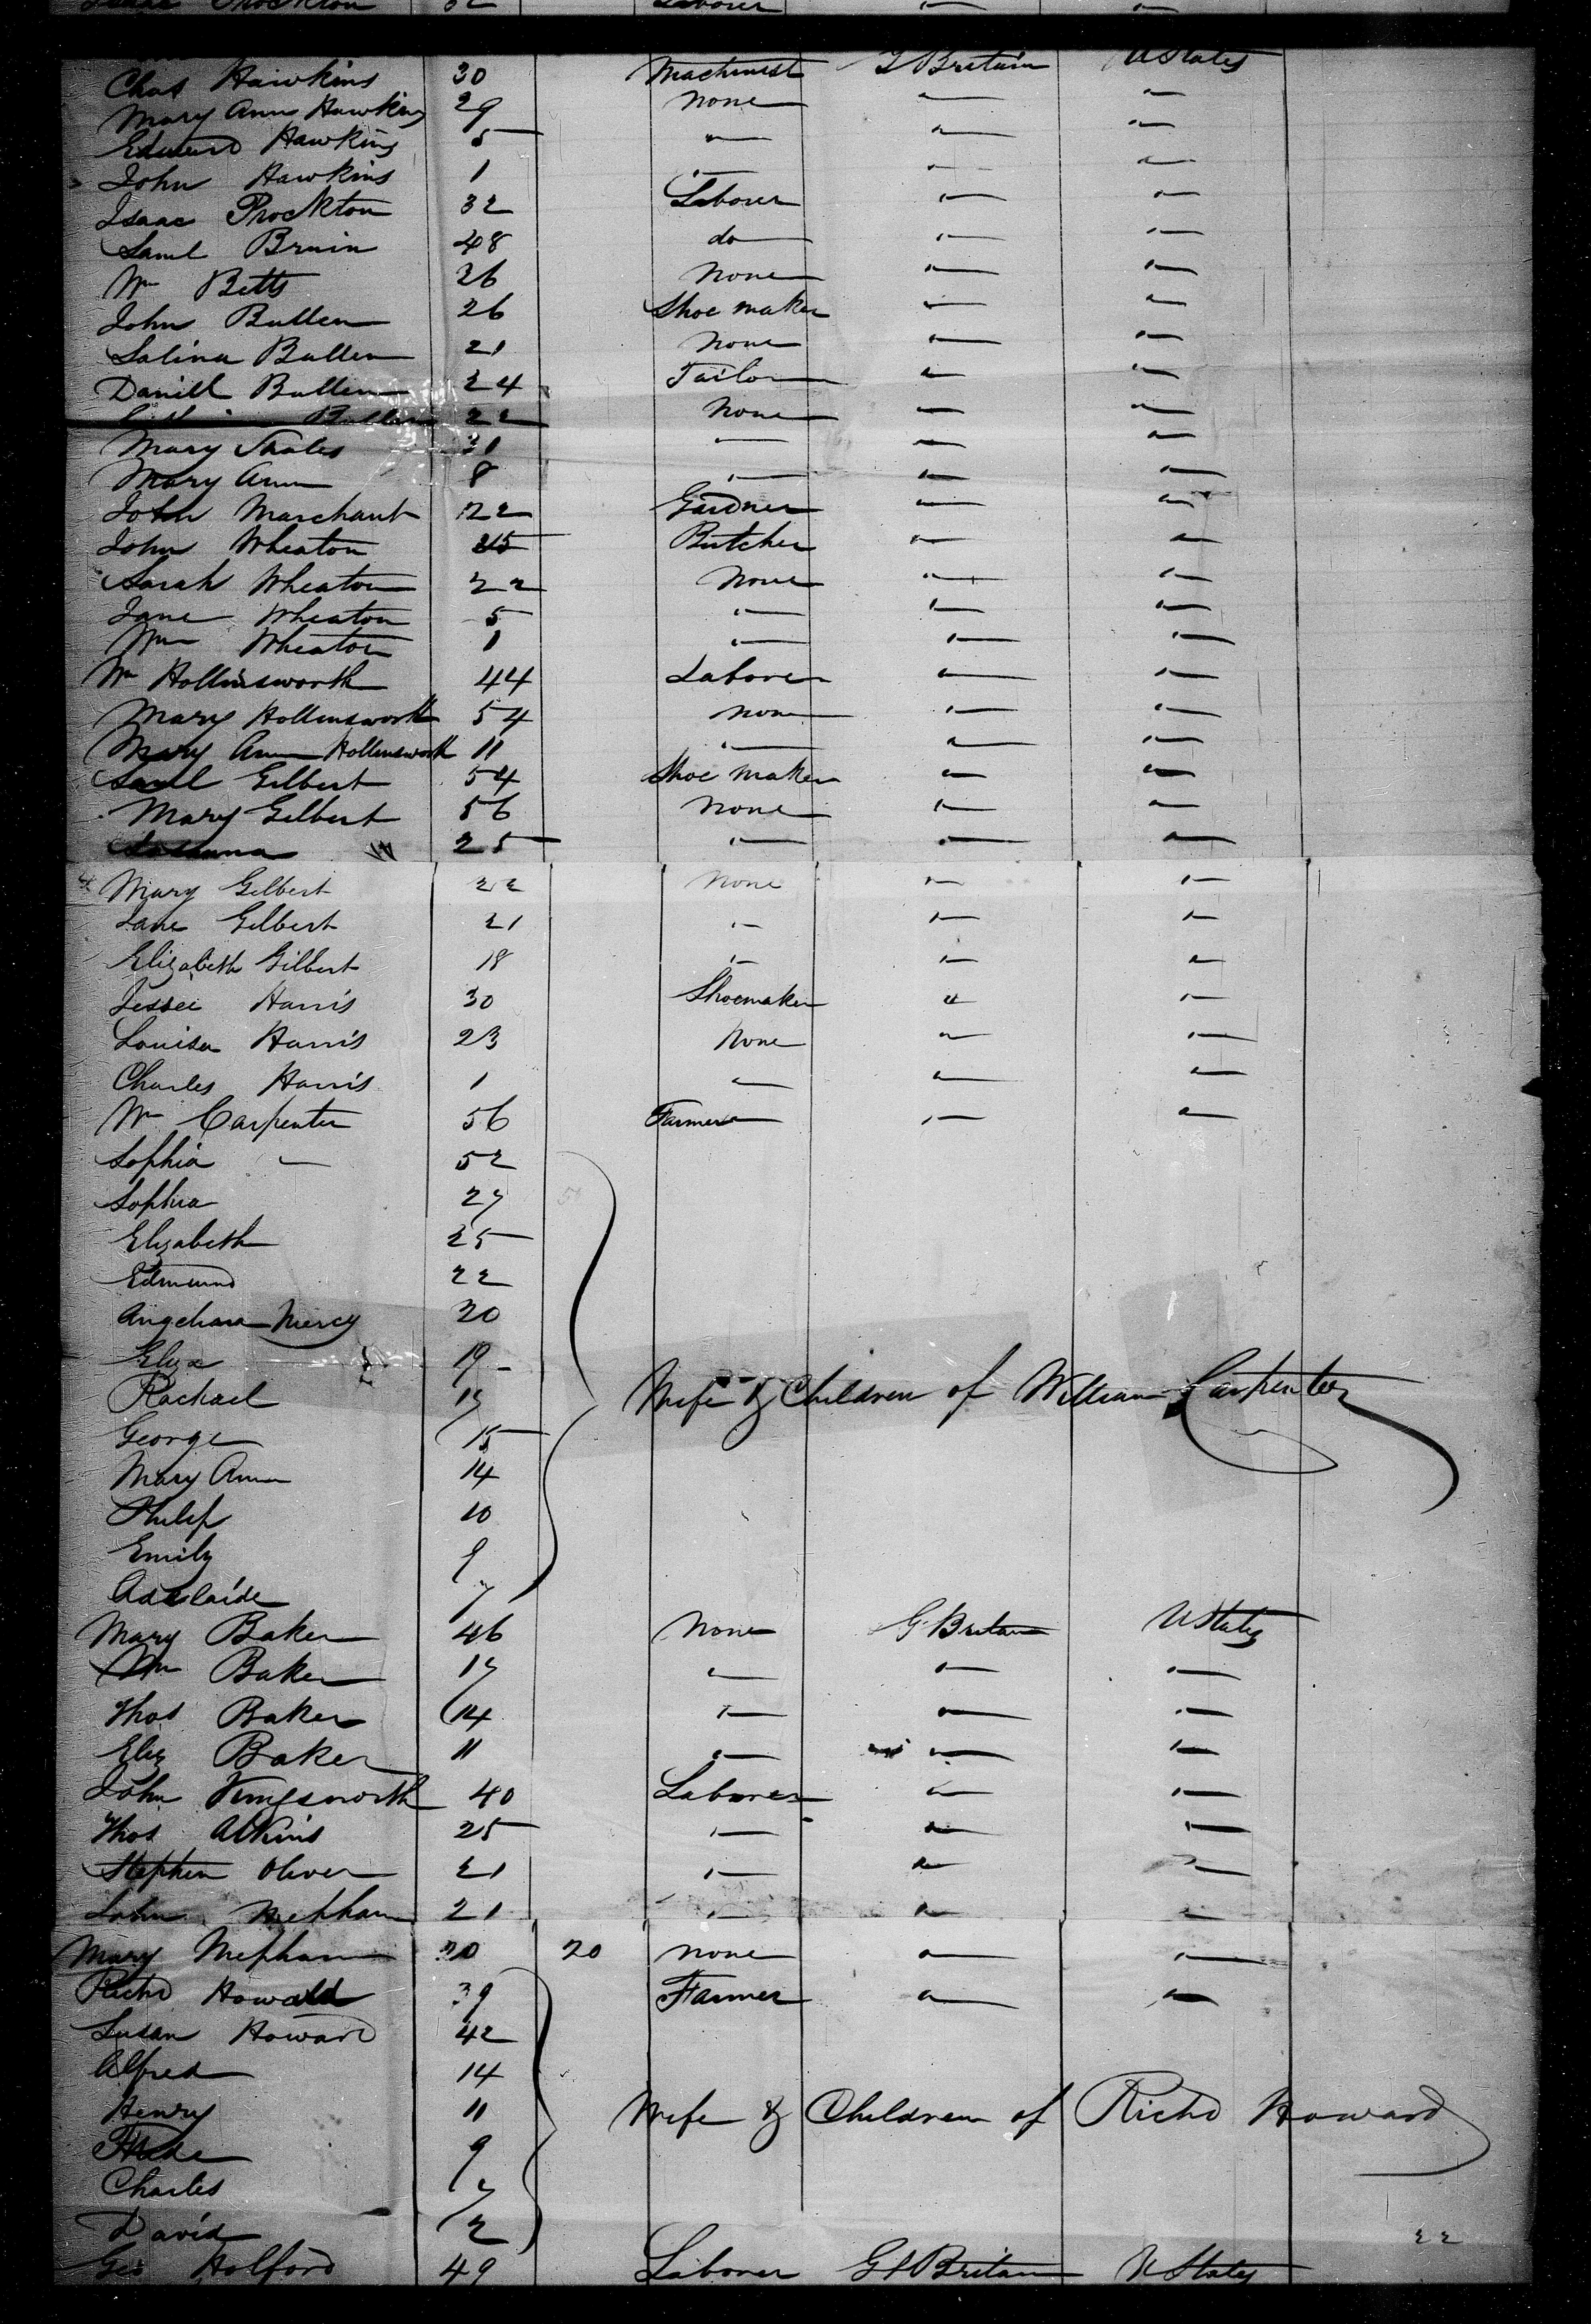 Isaac Prockton 32 Laborer " "
Chas Hawkins 30 Machinist G Britain U States
Mary Ann Hawkins 29 None " "
Edward Hawkins 5 " " "
John Hawkins 1 " " "
Isaac Prockton 32 Laborer " "
Saml Bruin 48 do " "
Wm Betts 26 None " "
John Bullen 26 Shoe maker " "
Salina Bullen 21 None " "
Daniel Bullen 24 Tailor " "
Bullen 22 None " "
Mary Skates 31 " " "
Mary Ann 8 " " "
John Marchant 22 Gardner " "
John Wheaton 25 Butcher " "
Sarah Wheaton 22 None " "
Jane Wheaton 5 " " "
Wm Wheaton 1 " " "
Wm Hollinsworth 44 Laborer " "
Mary Hollinsworth 54 none " "
Mary Ann Hollinsworth 11 " " "
Saml Gilbert 54 Shoe maker " "
Mary Gilbert 56 None " "
Susanna 25 " " "
Mary Gilbert 22 None " "
Jane Gilbert 21 " " "
Elizabeth Gilbert 18 " " "
Jessee Harris 30 Shoemaker " "
Louisa Harris 23 None " "
Charles Harris 1 " " "
Wm Carpenter 56 Farmer " "
Sophia " 52
Sophia 27
Elizabeth 25
Edmund 22
Mercy 20
Eliza 19
Rachael 17 Wife & Children of William Carpenter
George 15
Mary Ann 14
Philip 10
Emily 9
Adelaide 7
Mary Baker 46 None G. Britain U States
Wm Baker 17 " " "
Thos Baker 14 " " "
Eliz Baker 11 " " "
John Kingsnorth 40 Laborer " "
Thos Atkins 25 " " "
Stephen Oliver 21 " " "
John Mepham 21 " " "
Mary Mepham 20 20 none " "
Richd Howard 39 Farmer " "
Susan Howard 42
Alfred 14
Henry 11 Wife & Children of Richd Howard
9
Charles 7
David 2
22
Geo Holford 49 Laborer Gt Britain U States